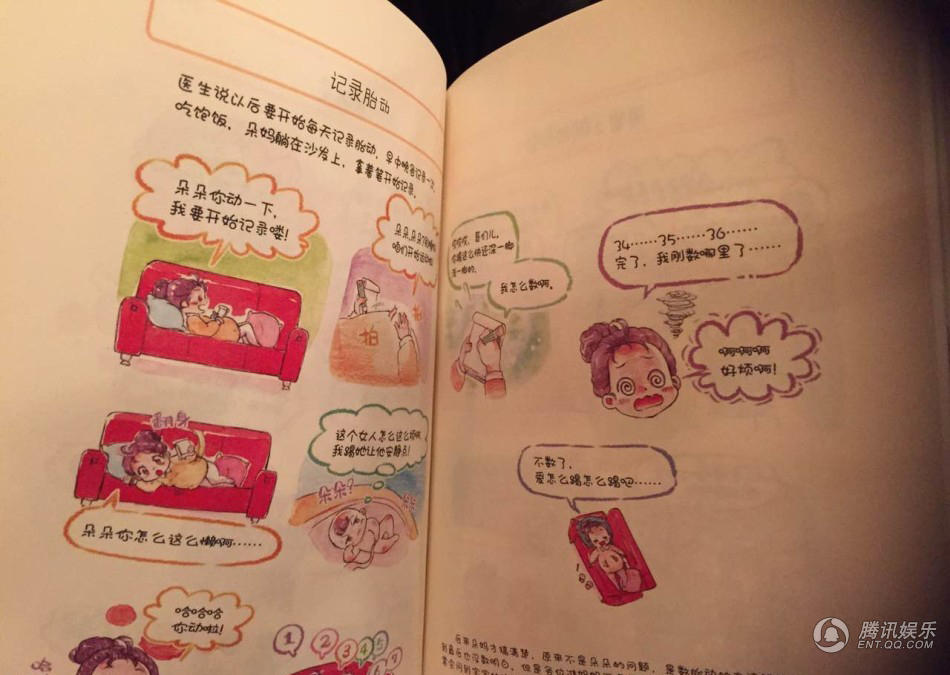 记录胎动
医生说以后要开始每天记录胎动，早中晚各记录一次，
吃饱饭，朵妈躺在沙发上，拿着笔开始记录。
朵朵你动一下，
我要开始记录喽！
咱们开始
拍
拍
翻身
朵朵你怎么这么懒啊……
这个女人怎么这么烦啊，
我踢她让他安静点！
朵朵？
朵朵
哈哈哈
你动啦！
哈
1
2
3
4
5
6
7
哎哎哎，哥们儿，
你踢这么快还深一脚
浅一脚的，
我怎么数啊。
34……35……36……
完了，我刚数哪里了……
啊啊啊
好烦啊！
不数了，
爱怎么踢怎么踢吧……
后来朵妈才搞清楚，原来不是朵朵的问题，是数胎动的方法
到最后也没数明白，但是各位准妈妈
腾讯娱乐
ENT.QQ.COM